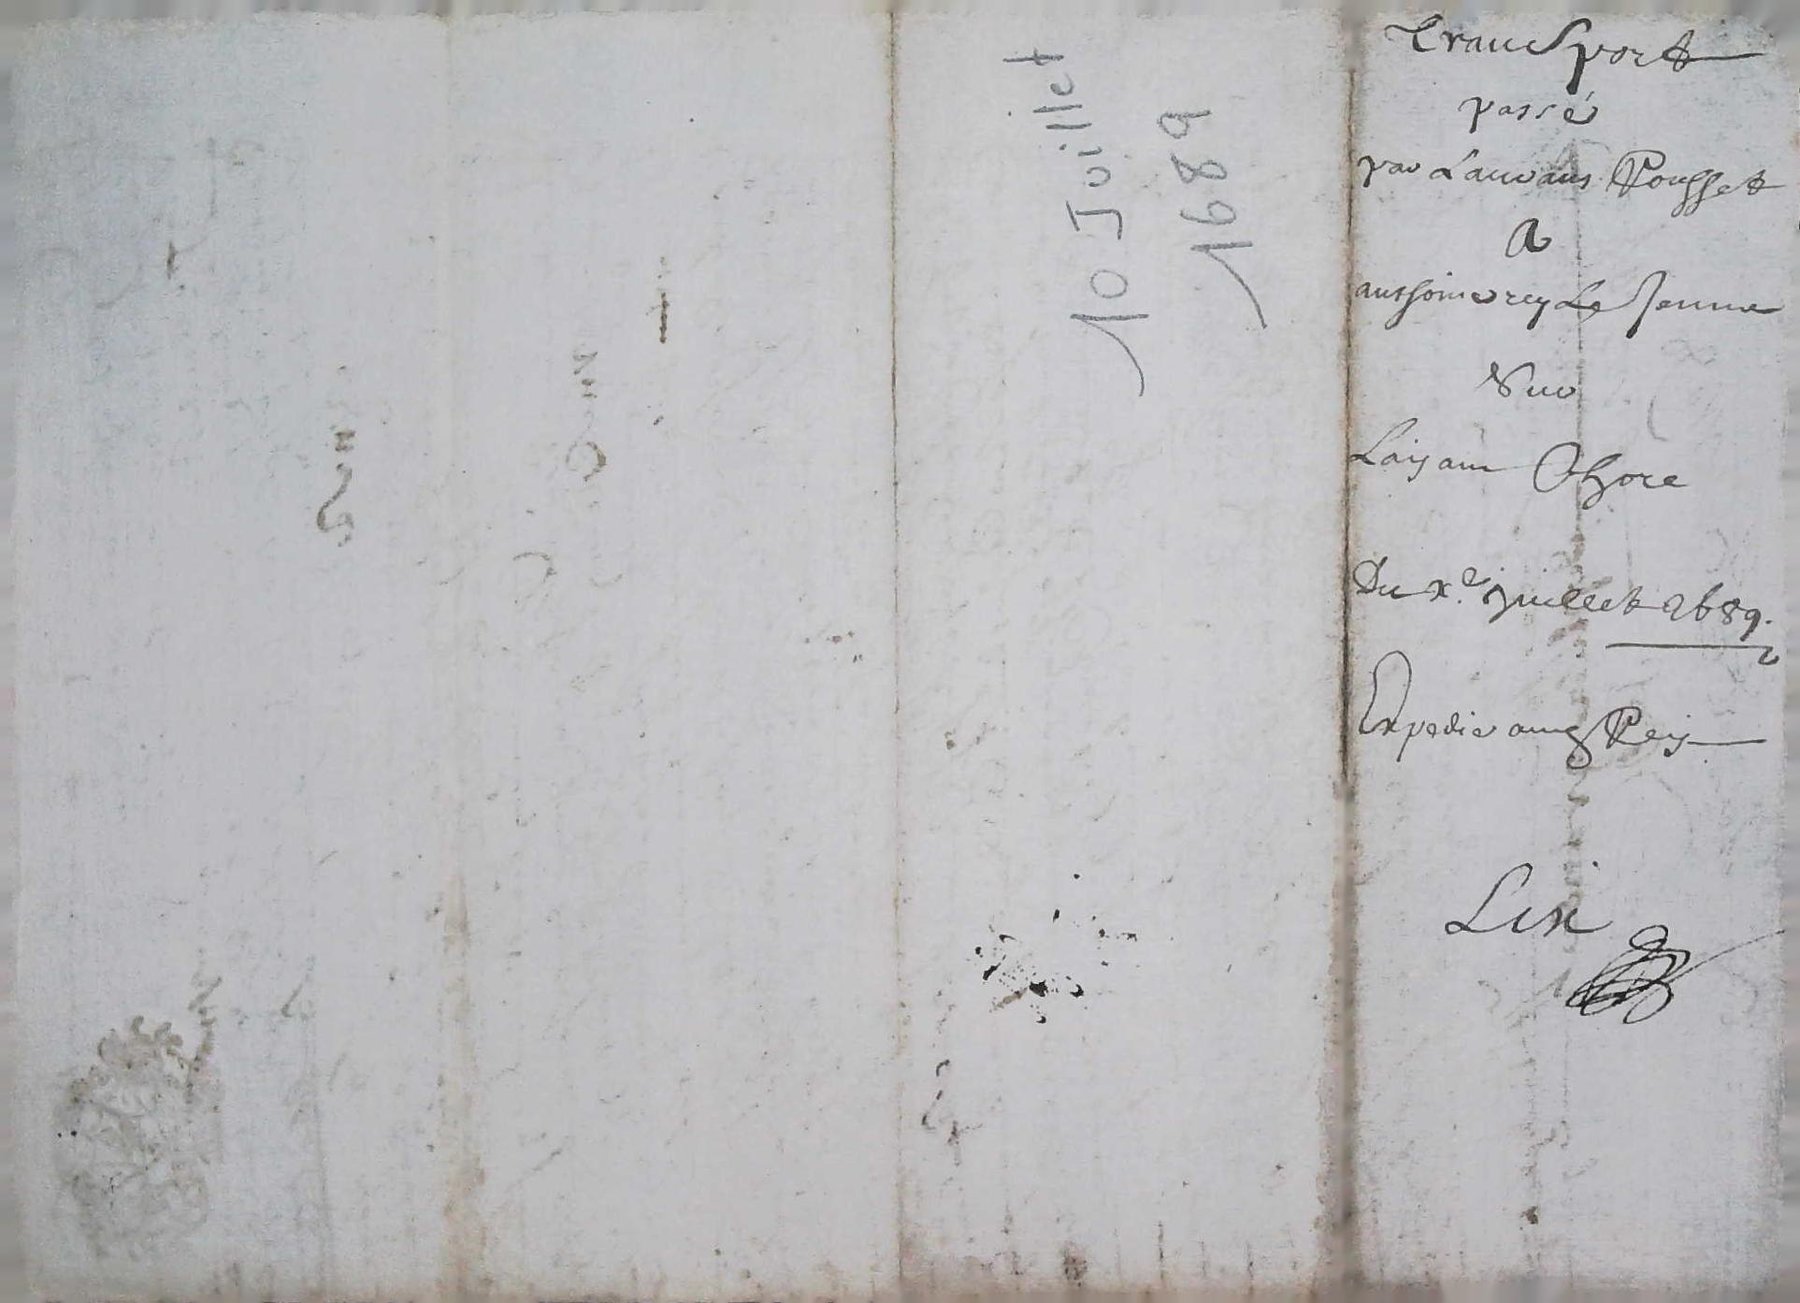 10 Juillet
1689
Transport
passé
par Laurans Rousset
A
anthoine rey Le Jeune
Sur
Laisam Chore
Du xe. juillet 1689.
Expedie aud Rey